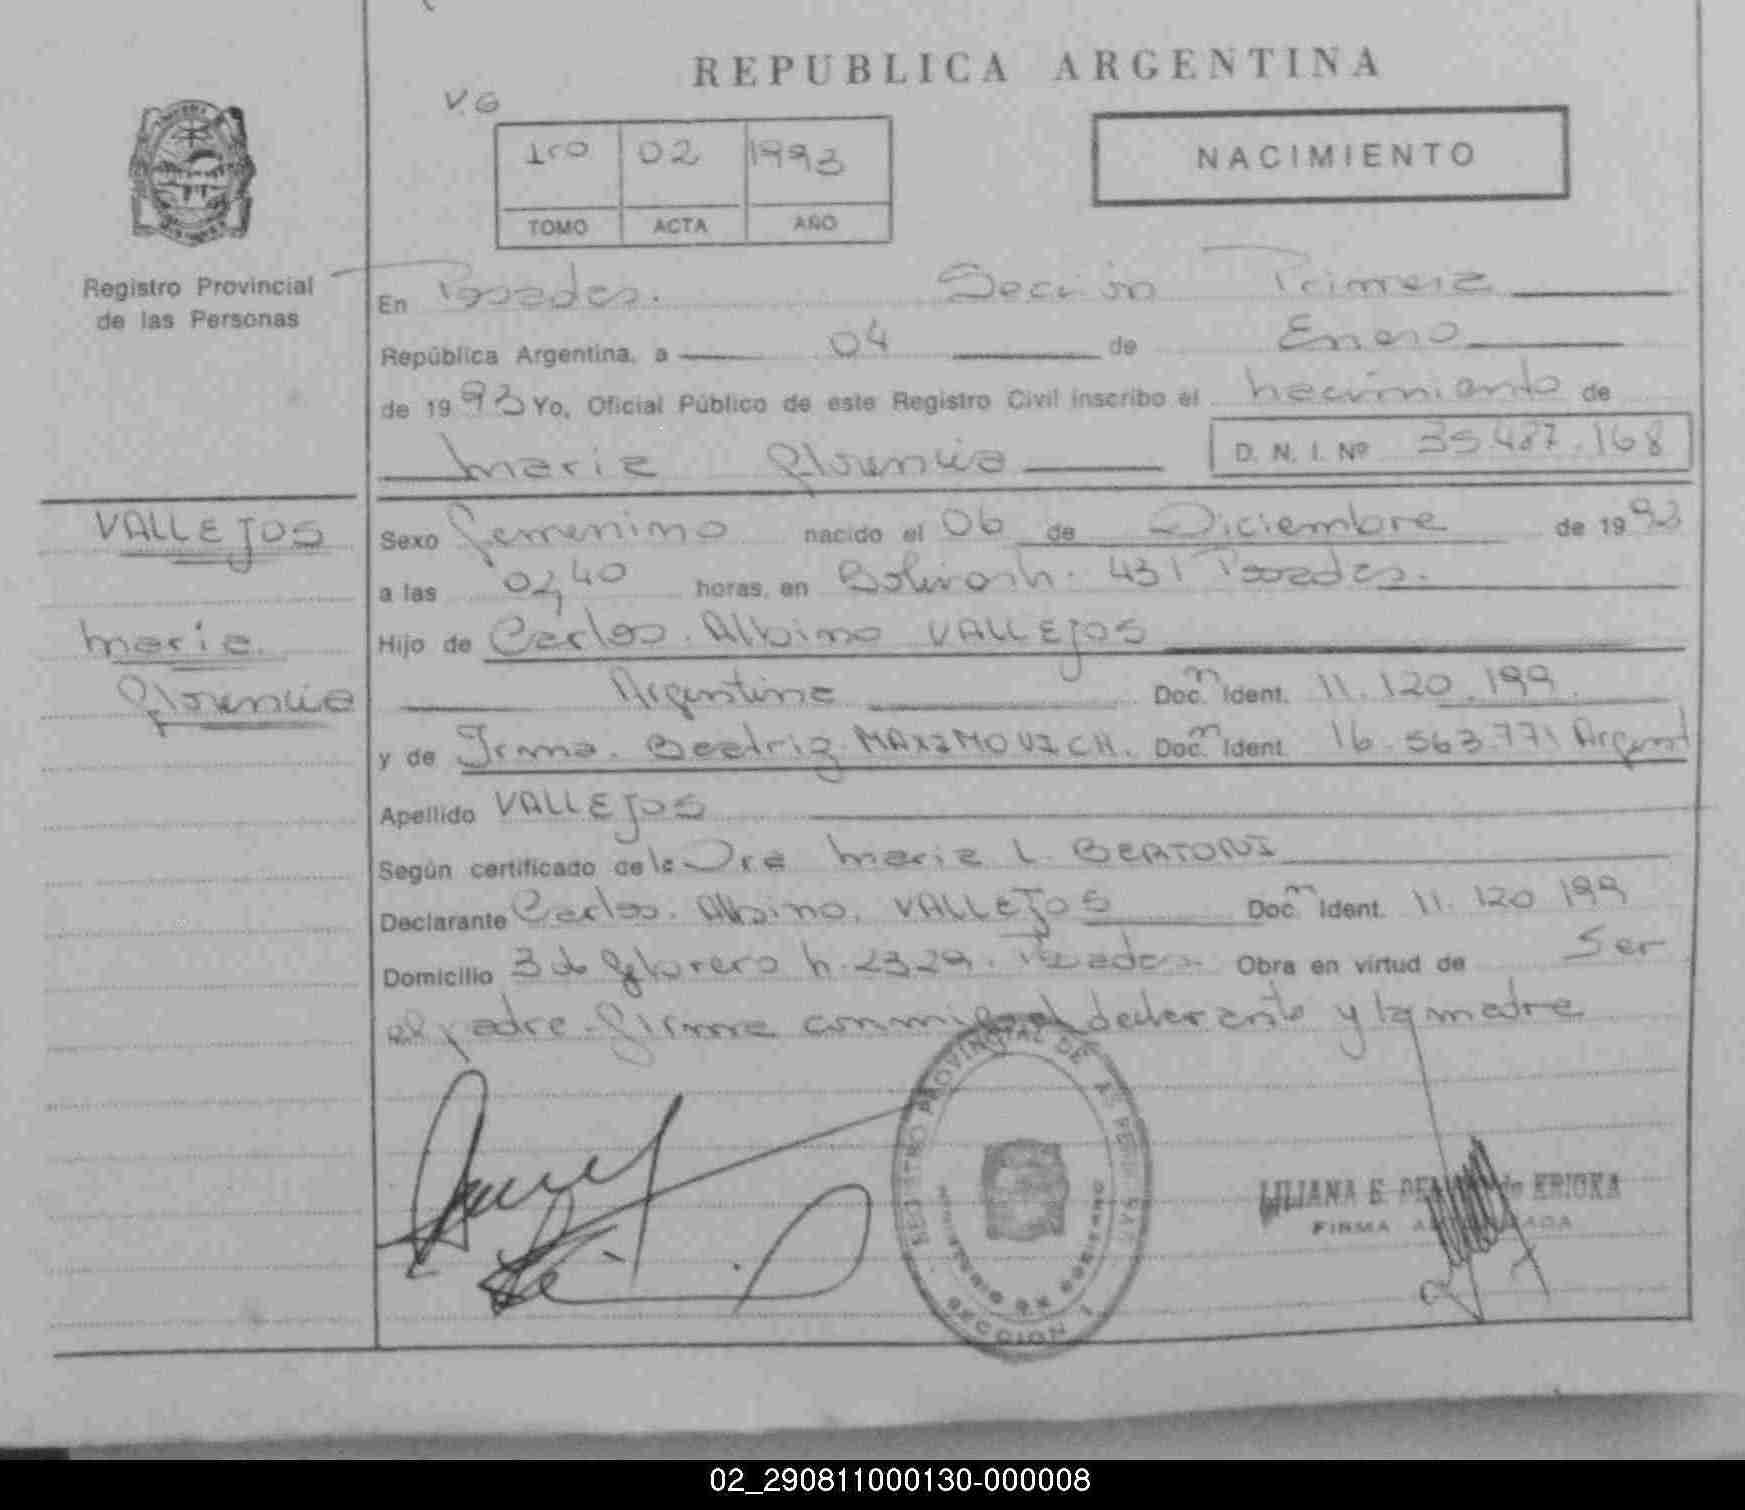 REPUBLICA ARGENTINA
V.G
1ro 02 1993
TOMO ACTA AÑO
NACIMIENTO
Registro Provincial
de las Personas
En Posadas. Sección Primera
República Argentina, a 04 de Enero
de 1993 Yo, Oficial Público de este Registro Civil inscribo el nacimiento de
Maria Florencia D. N. I. Nº 35.487.168
VALLEJOS
Maria
Florencia
Sexo femenino nacido el 06 de Diciembre de 19
a las horas, en Bolivar h. 431 Posadas.
Hijo de Carlos Albino VALLEJOS
Argentina Doc.m Ident. 11.120.199
y de Irma Beatriz MAXIMOVICH. Doc.m Ident. 16.563.771 Argent
Apellido VALLEJOS
Según certificado de la Dra Maria L. BERTONI
Declarante Carlos Albino VALLEJOS Doc.m Ident. 11.120.199
Domicilio 3 de febrero h. 2329. Posadas Obra en virtud de Ser
el padre. firma conmigo el declarante y la madre
REGISTRO PROVINCIAL DE LAS PERSONAS
MINISTERIO DE GOBIERNO
SECCION 1
LILIANA E. de KRIOKA
FIRMA AUTORIZADA
02_290811000130-000008